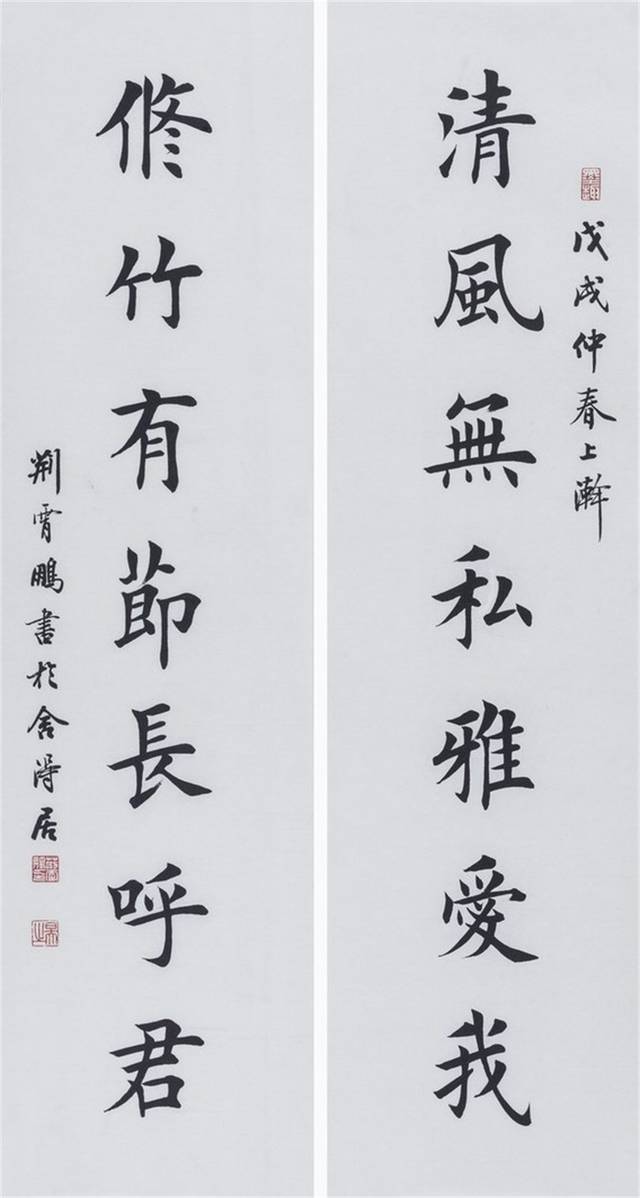 戊戌仲春上澣
清風無私雅愛我
脩竹有節長呼君
荆霄鵬書於舍得居